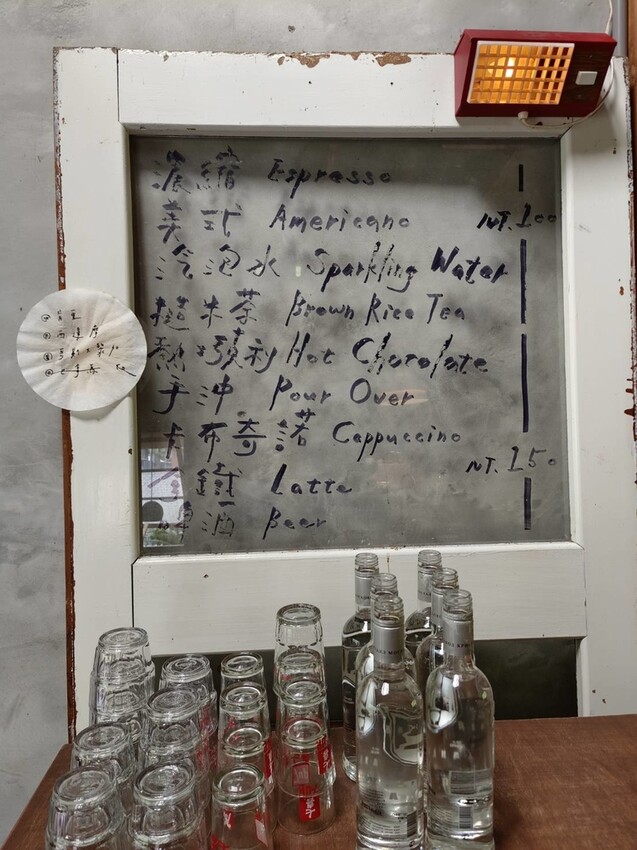 濃縮 Espresso
美式 Americano NT.100
汽泡水 Sparkling Water
糙米茶 Brown Rice Tea
熱巧克力 Hot Chocolate
手沖 Pour Over
卡布奇諾 Cappuccino
NT.150
拿鐵 Latte
啤酒 Beer